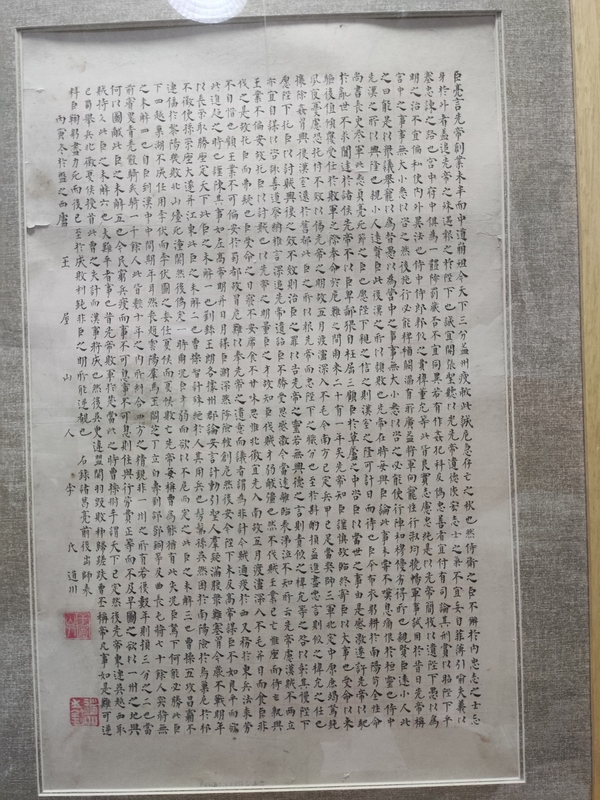 臣亮言先帝創業未半而中道崩殂今天下三分益州疲敝此誠危急存亡之秋也然侍衛之臣不懈於內忠志之士忘
身於外者蓋追先帝之殊遇欲報之於陛下也誠宜開張聖聽以光先帝遺德恢宏志士之氣不宜妄自菲薄引喻失義以
塞忠諫之路也宮中府中俱為一體陟罰臧否不宜異同若有作姦犯科及為忠善者宜付有司論其刑賞以昭陛下平
明之治不宜偏私使內外異法也侍中侍郎郭攸之費禕董允等此皆良實志慮忠純是以先帝簡拔以遺陛下愚以為
宮中之事事無大小悉以咨之然後施行必能裨補闕漏有所廣益將軍向寵性行淑均曉暢軍事試用於昔日先帝稱
之曰能是以眾議舉寵以為督愚以為營中之事事無大小悉以咨之必能使行陣和穆優劣得所也親賢臣遠小人此
先漢之所以興隆也親小人遠賢臣此後漢之所以傾頹也先帝在時每與臣論此事未嘗不嘆息痛恨於桓靈也侍中
尚書長史參軍此悉貞亮死節之臣也願陛下親之信之則漢室之隆可計日而待也臣本布衣躬耕於南陽苟全性命
於亂世不求聞達於諸侯先帝不以臣卑鄙猥自枉屈三顧臣於草廬之中咨臣以當世之事由是感激遂許先帝以馳
驅後值傾覆受任於敗軍之際奉命於危難之間爾來二十有一年矣先帝知臣謹慎故臨崩寄臣以大事也受命以來
夙夜憂慮恐託付不效以傷先帝之明故五月渡瀘深入不毛今南方已定兵甲已足當獎帥三軍北定中原庶竭駑鈍
攘除姦凶興復漢室還於舊都此臣之所以報先帝而忠陛下之職分也至於斟酌損益進盡忠言則攸之禕允之任也
願陛下託臣以討賊興復之效不效則治臣之罪以告先帝之靈若無興德之言則責攸之禕允等之咎以彰其慢陛下
亦宜自謀以咨諏善道察納雅言深追先帝遺詔臣不勝受恩感激今當遠離臨表涕泣不知所云先帝慮漢賊不兩立
王業不偏安故託臣以討賊也以先帝之明量臣之才故知臣伐賊才弱敵彊也然不伐賊王業亦亡惟坐而待亡孰與
伐之是故託臣而弗疑也臣受命之日寢不安席食不甘味思惟北征宜先入南故五月渡瀘深入不毛并日而食臣非
不自惜也顧王業不可偏安於蜀都故冒危難以奉先帝之遺意而議者謂為非計今賊適疲於西又務於東兵法乘勞
此進趨之時也謹陳其事如左高帝明並日月謀臣淵深然涉險被創危然後安今陛下未及高帝謀臣不如良平而欲
以長策取勝坐定天下此臣之未解一也劉繇王朗各據州郡論安言計動引聖人群疑滿腹眾難塞胸今歲不戰明年
不征使孫策坐大遂并江東此臣之未解二也曹操智計殊絕於人其用兵也髣髴孫吳然困於南陽險於烏巢危於祁
連偪於黎陽幾敗北山殆死潼關然後偽定一時爾況臣才弱而欲以不危而定之此臣之未解三也曹操五攻昌霸不
下四越巢湖不成任用李服而李服圖之委任夏侯而夏侯敗亡先帝每稱操為能猶有此失況臣駑下何能必勝此臣
之未解四也自臣到漢中中間期年耳然喪趙雲陽群馬玉閻芝丁立白壽劉郃鄧銅等及曲長屯將七十餘人突將無
前賨叟青羌散騎武騎一千餘人此皆數十年之內所糾合四方之精銳非一州之所有若復數年則損三分之二也當
何以圖敵此臣之未解五也今民窮兵疲而事不可息事不可息則住與行勞費正等而不及早圖之欲以一州之地與
賊持久此臣之未解六也夫難平者事也昔先帝敗軍於楚當此之時曹操拊手謂天下已定然後先帝東連吳越西取
巴蜀舉兵北征夏侯授首此曹之失計而漢事將成也然後吳更違盟關羽毀敗秭歸蹉跌曹丕稱帝凡事如是難可逆
料臣鞠躬盡力死而後已至於成敗利鈍非臣之明所能逆覩也 右錄諸葛亮前後出師表
丙寅冬於盤之西廬 王屋山人 李氏道川